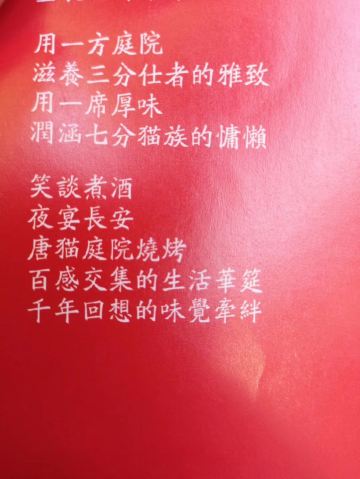 用一方庭院
滋養三分仕者的雅致
用一席厚味
潤涵七分猫族的慵懶
笑談煮酒
夜宴長安
唐猫庭院燒烤
百感交集的生活華筵
千年回想的味覺牽絆